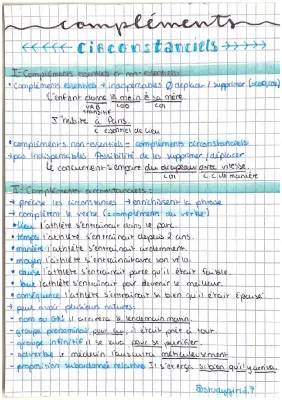 compléments
circonstanciels
I - Compléments essentiels et non-essentiels :
• Compléments essentiels → indispensables ≠ déplacer / supprimer
L'enfant donne la main à sa mère.
VRB COD COI
J'habite à Paris.
C. essentiel de lieu
• compléments non-essentiels → compléments circonstanciels
pas indispensables Possibilité de les supprimer / déplacer
Le concurrent s'empare du drapeau avec vitesse.
COI C.C de manière
II - Compléments circonstanciels :
→ précise les circonstances → enrichissent la phrase
→ complètent le verbe (≠ complément du verbe)
• lieu L'athlète s'entraînait dans le parc.
• temps L'athlète s'entraînait depuis 2 ans.
• manière L'athlète s'entraînait ardemment.
• moyen L'athlète s'entraînait avec son vélo.
• cause L'athlète s'entraînait parce qu'il était faible.
• but L'athlète s'entraînait pour devenir le meilleur.
• conséquence L'athlète s'entraînait si bien qu'il était épuisé
→ peut avoir plusieurs natures:
- nom ou GN: il arrivera le lendemain matin.
- groupe pronominal: pour lui, il était prêt à tout.
- groupe infinitif: il se lava pour se purifier.
- adverbe: le médecin l'ausculta méticuleusement
- proposition subordonnée relative: Il s'exerça si bien qu'il y arriva.